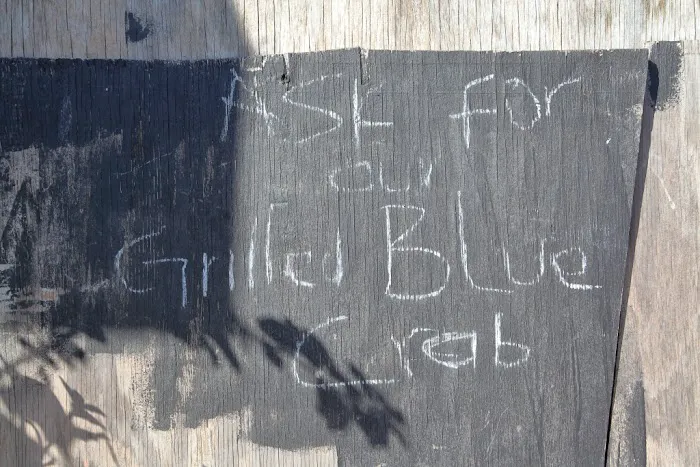 Ask for
our
Grilled Blue
Crab